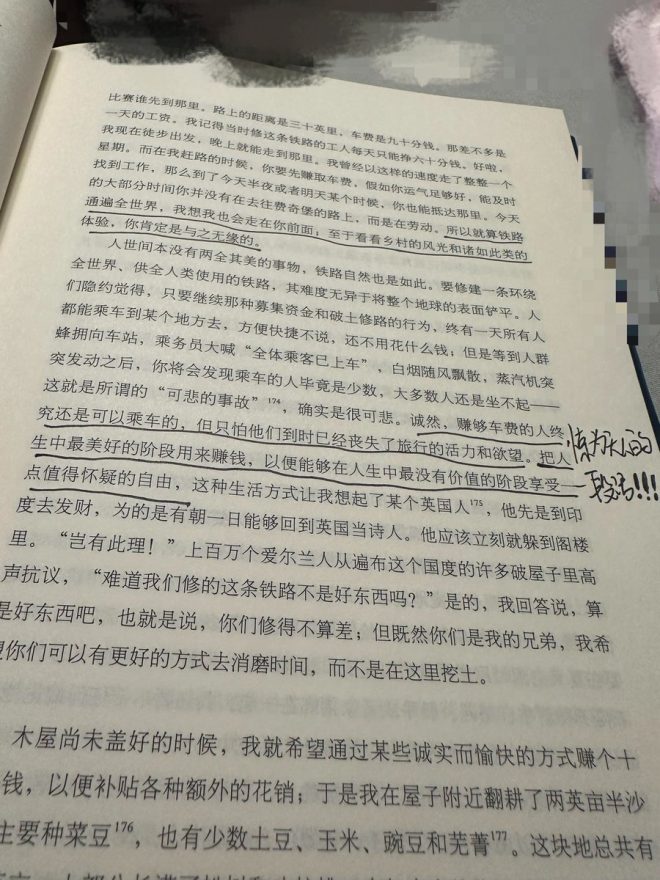 比赛谁先到那里。路上的距离是三十英里，车费是九十分钱。那差不多是
一天的工资。我记得当时修这条铁路的工人每天只能挣六十分钱。好啦，
我现在徒步出发，晚上就能走到那里。我曾经以这样的速度走了整整一个
星期。而在我赶路的时候，你要先赚取车费，假如你运气足够好，能及时
找到工作，那么到了今天半夜或者明天某个时候，你也能抵达那里。今天
的大部分时间你并没有在去往费奇堡的路上，而是在劳动。所以就算铁路
通遍全世界，我想我也会走在你前面；至于看看乡村的风光和诸如此类的
体验，你肯定是与之无缘的。
人世间本没有两全其美的事物，铁路自然也是如此。要修建一条环绕
全世界、供全人类使用的铁路，其难度无异于将整个地球的表面铲平。人
们隐约觉得，只要继续那种募集资金和破土修路的行为，终有一天所有人
都能乘车到某个地方去，方便快捷不说，还不用花什么钱；但是等到人群
蜂拥向车站，乘务员大喊“全体乘客已上车”，白烟随风飘散，蒸汽机突
突发动之后，你将会发现乘车的人毕竟是少数，大多数人还是坐不起——
这就是所谓的“可悲的事故”174，确实是很可悲。诚然，赚够车费的人终
究还是可以乘车的，但只怕他们到时已经丧失了旅行的活力和欲望。把人
生中最美好的阶段用来赚钱，以便能够在人生中最没有价值的阶段享受一
点值得怀疑的自由，这种生活方式让我想起了某个英国人175，他先是到印
度去发财，为的是有朝一日能够回到英国当诗人。他应该立刻就躲到阁楼
里。“岂有此理！”上百万个爱尔兰人从遍布这个国度的许多破屋子里高
声抗议，“难道我们修的这条铁路不是好东西吗？”是的，我回答说，算
是好东西吧，也就是说，你们修得不算差；但既然你们是我的兄弟，我希
望你们可以有更好的方式去消磨时间，而不是在这里挖土。
惊为天人的
一段话!!!
木屋尚未盖好的时候，我就希望通过某些诚实而愉快的方式赚个十
钱，以便补贴各种额外的花销；于是我在屋子附近翻耕了两英亩半沙
主要种菜豆176，也有少数土豆、玉米、豌豆和芜菁177。这块地总共有